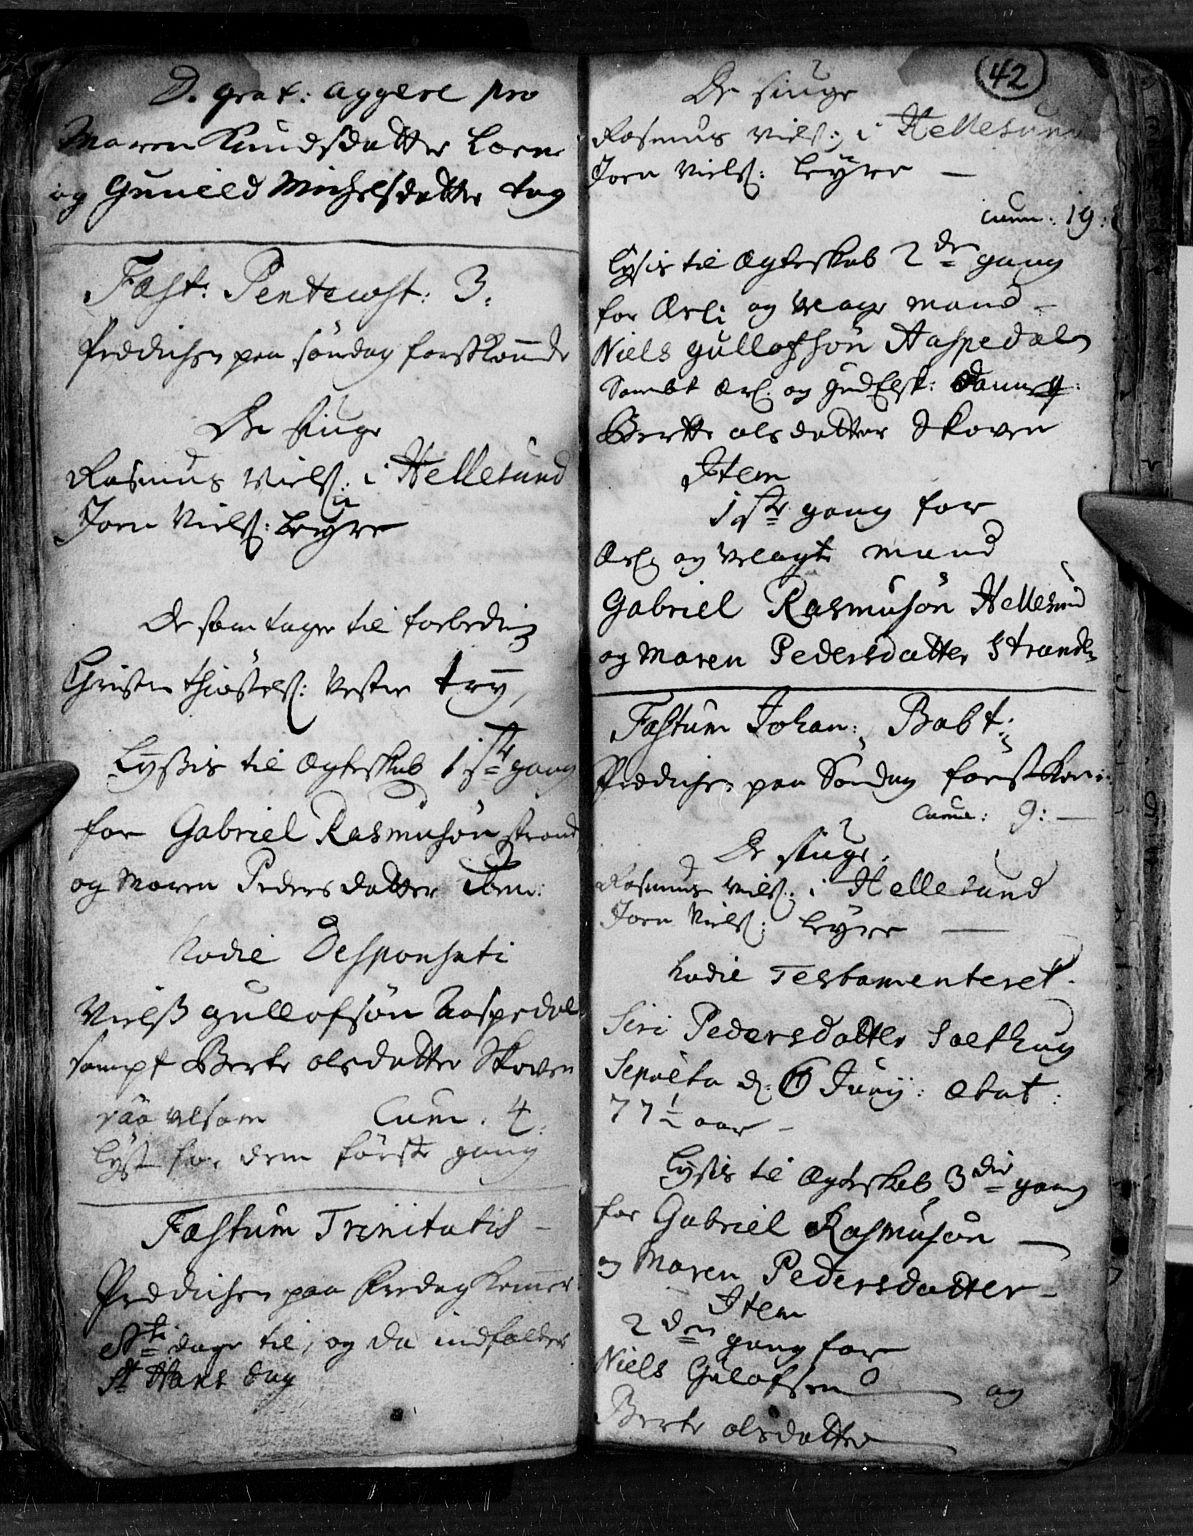 D. grat: aggere pro
Maren Knudsdatter Loene
og Gunild Michelsdatter tag
Fæst: Pentecost: 3.
Prædichen paa söndag førstkomede
De siuge
Rasmus Niels: i Hellesund
Joen Niels: Leyre
De som tager til forbedring
Christen thiöstels: Vester try,
Lyßis til ægteskab 1ste gang
for Gabriel Rasmusön strand
og Maren Pedersdatter ibm:
hodie Desponsati
Nielß gullofsön Haspedal
sampt Berte olsdatter Skoven
Cum: 4.
Lyst for dem förste gang
Fæstum Trinitatis –
Prædichen paa fredag kommer
Sti dage til, og da indfalder
St Hans dag
42
De siuge
Rasmus Niels: i Hellesund
Joen Niels: Leyre —
Cum: 19:
Lysis til ægteskab 2den gang
for Ærli og Velagt mand –
Niels gullofsön Haspedalen
Sambt ærl: og gudElsk:
Berte olsdatter Skoven
Item
1ste gang for
ærl: og Velagte mand
Gabriel Rasmusön Hellesund
og Maren Pedersdatter Stranden
Fæstum Johan: Babt:
Prædichen paa Söndag førstkom:
Cum: 9: —
De siuge.
Rasmus Niels: i Hellesund
Joen Niels: Leyre —
hodie Testamenteret.
Siri Pedersdatter Salthug
Sepulta d: Junij: ætat:
77½ aar –
Lysis til ægteskab 3die gang
for Gabriel Rasmusön —
og Maren Pedersdatter –
Item
2den gang for
Niels Gulofsen — og
Berte olsdatter —